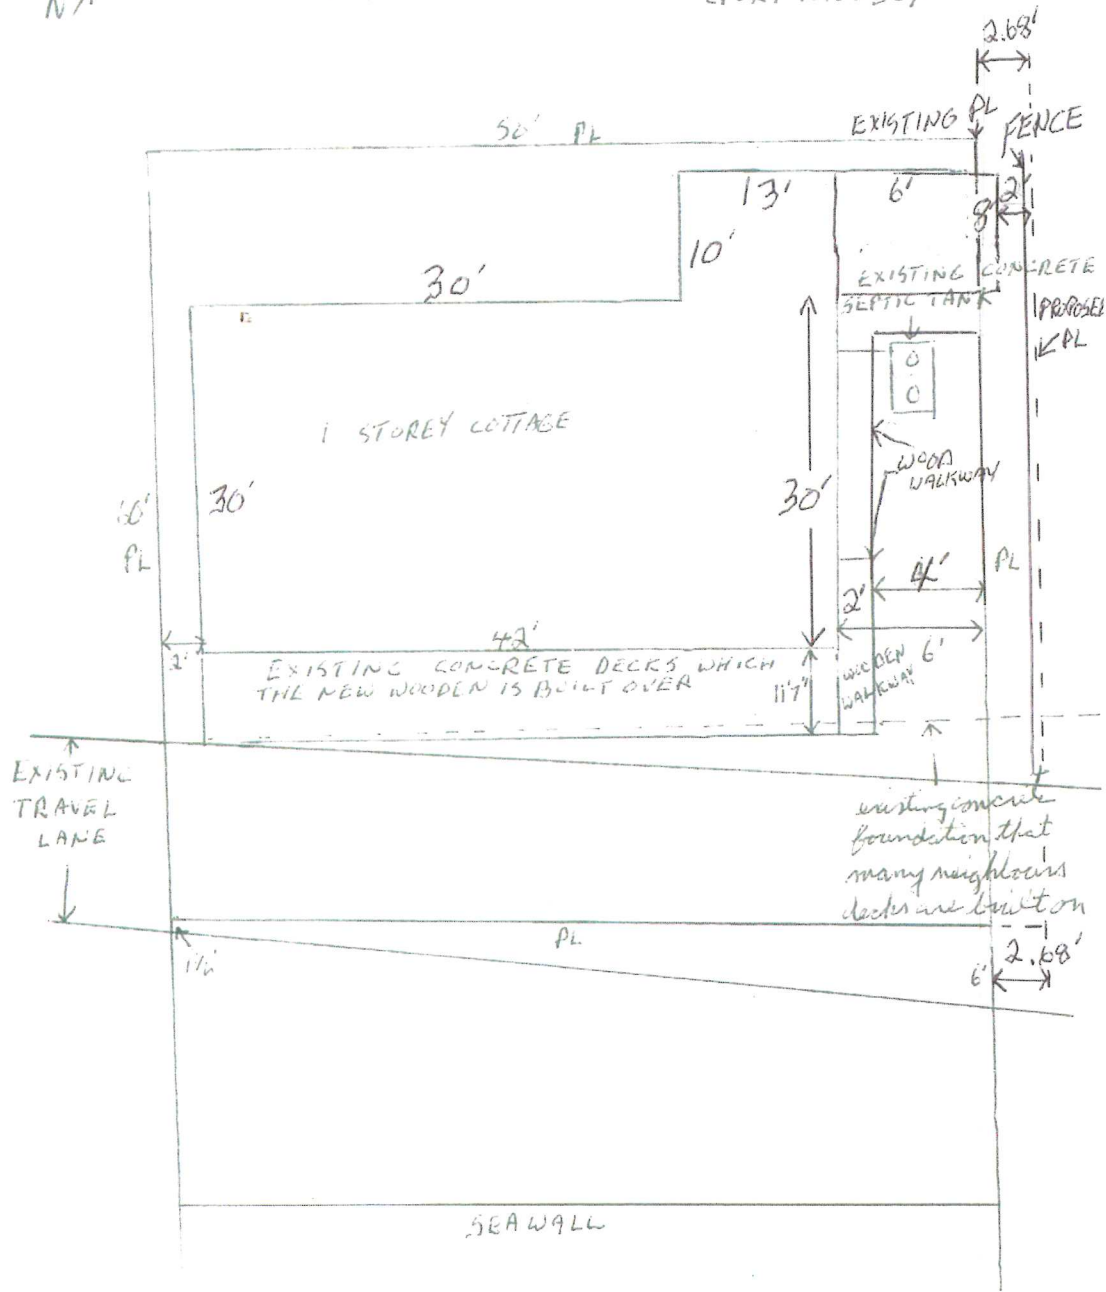 2.68'
50' PL
EXISTING PL
FENCE
13'
6'
2'
8'
10'
30'
EXISTING CONCRETE
SEPTIC TANK
PROPOSED
PL
1 STOREY COTTAGE
WOOD
WALKWAY
60'
PL
30'
30'
PL
4'
2'
6'
2'
42'
EXISTING CONCRETE DECKS WHICH
THE NEW WOODEN IS BUILT OVER
11'7"
WOODEN
WALKWAY
EXISTING
TRAVEL
LANE
existing concrete
foundation that
many neighbours
decks are built on
PL
6'
2.68'
SEAWALL